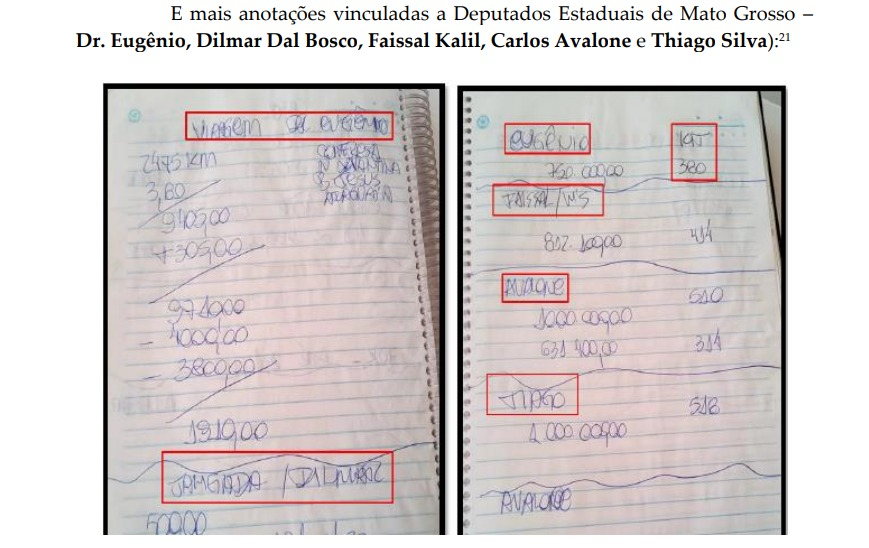 E mais anotações vinculadas a Deputados Estaduais de Mato Grosso –
Dr. Eugênio, Dilmar Dal Bosco, Faissal Kalil, Carlos Avalone e Thiago Silva):21
VIAGEM DR EUGÊNIO
2475 KM
3,80
9405,00
+305,00
9710,00
- 4000,00
- 3800,00
1910,00
JANGADA / DILMAR
500,00
EUGÊNIO KIT
750.000,00 380
FAISSAL / W'S
812.100,00 414
AVALONE
1000.000,00 510
631.400,00 314
TIAGO
1.000.000,00 518
AVALONE